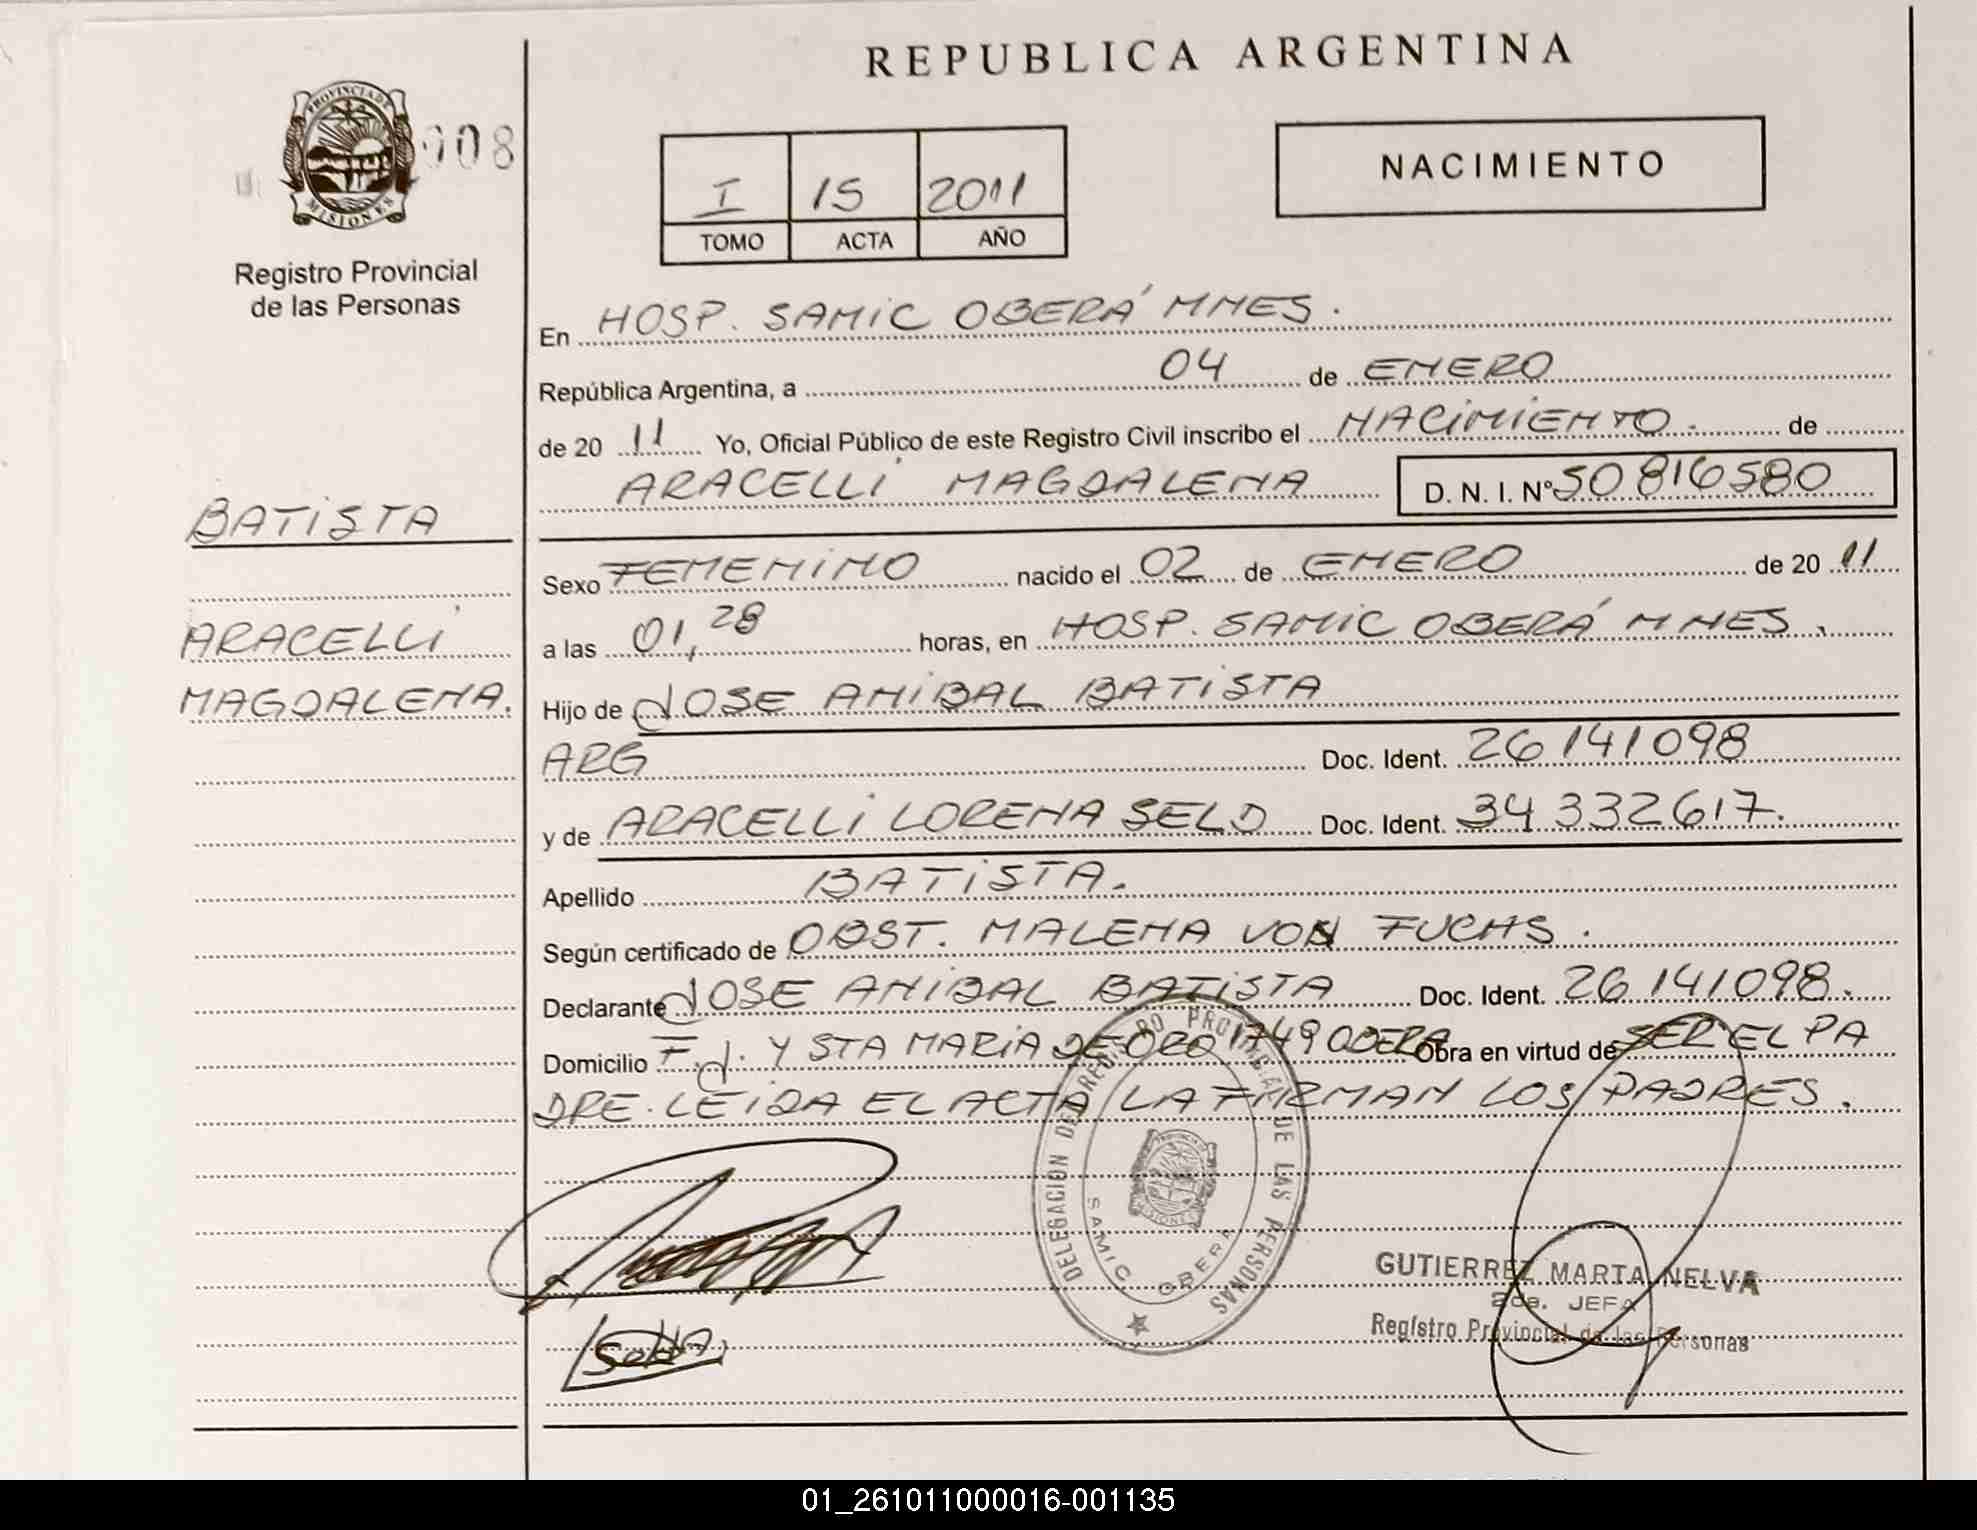 REPUBLICA ARGENTINA
PROVINCIA DE MISIONES
008
Registro Provincial
de las Personas
I 15 2011
TOMO ACTA AÑO
NACIMIENTO
En HOSP. SAMIC OBERÁ MNES.
República Argentina, a 04 de ENERO
de 20 11 Yo, Oficial Público de este Registro Civil inscribo el NACIMIENTO. de
ARACELLI MAGDALENA D. N. I. Nº 50816580
BATISTA
ARACELLI
MAGDALENA.
Sexo FEMENINO nacido el 02 de ENERO de 20 11
a las 01,28 horas, en HOSP. SAMIC OBERÁ MNES.
Hijo de JOSE ANIBAL BATISTA
ARG Doc. Ident. 26141098
y de ARACELLI LORENA SELD Doc. Ident. 34332617.
Apellido BATISTA.
Según certificado de OBST. MALENA VON FUCHS.
Declarante JOSE ANIBAL BATISTA Doc. Ident. 26141098.
Domicilio F. J. Y STA MARIA DE ORO 1749 OBERA Obra en virtud de SER EL PA
DRE. LEIDA EL ACTA LA FIRMAN LOS PADRES.
DELEGACION DEL REGISTRO PROVINCIAL DE LAS PERSONAS
SAMIC OBERA
MISIONES
GUTIERREZ MARTA NELVA
2da. JEFA
Registro Provincial de las Personas
01_261011000016-001135